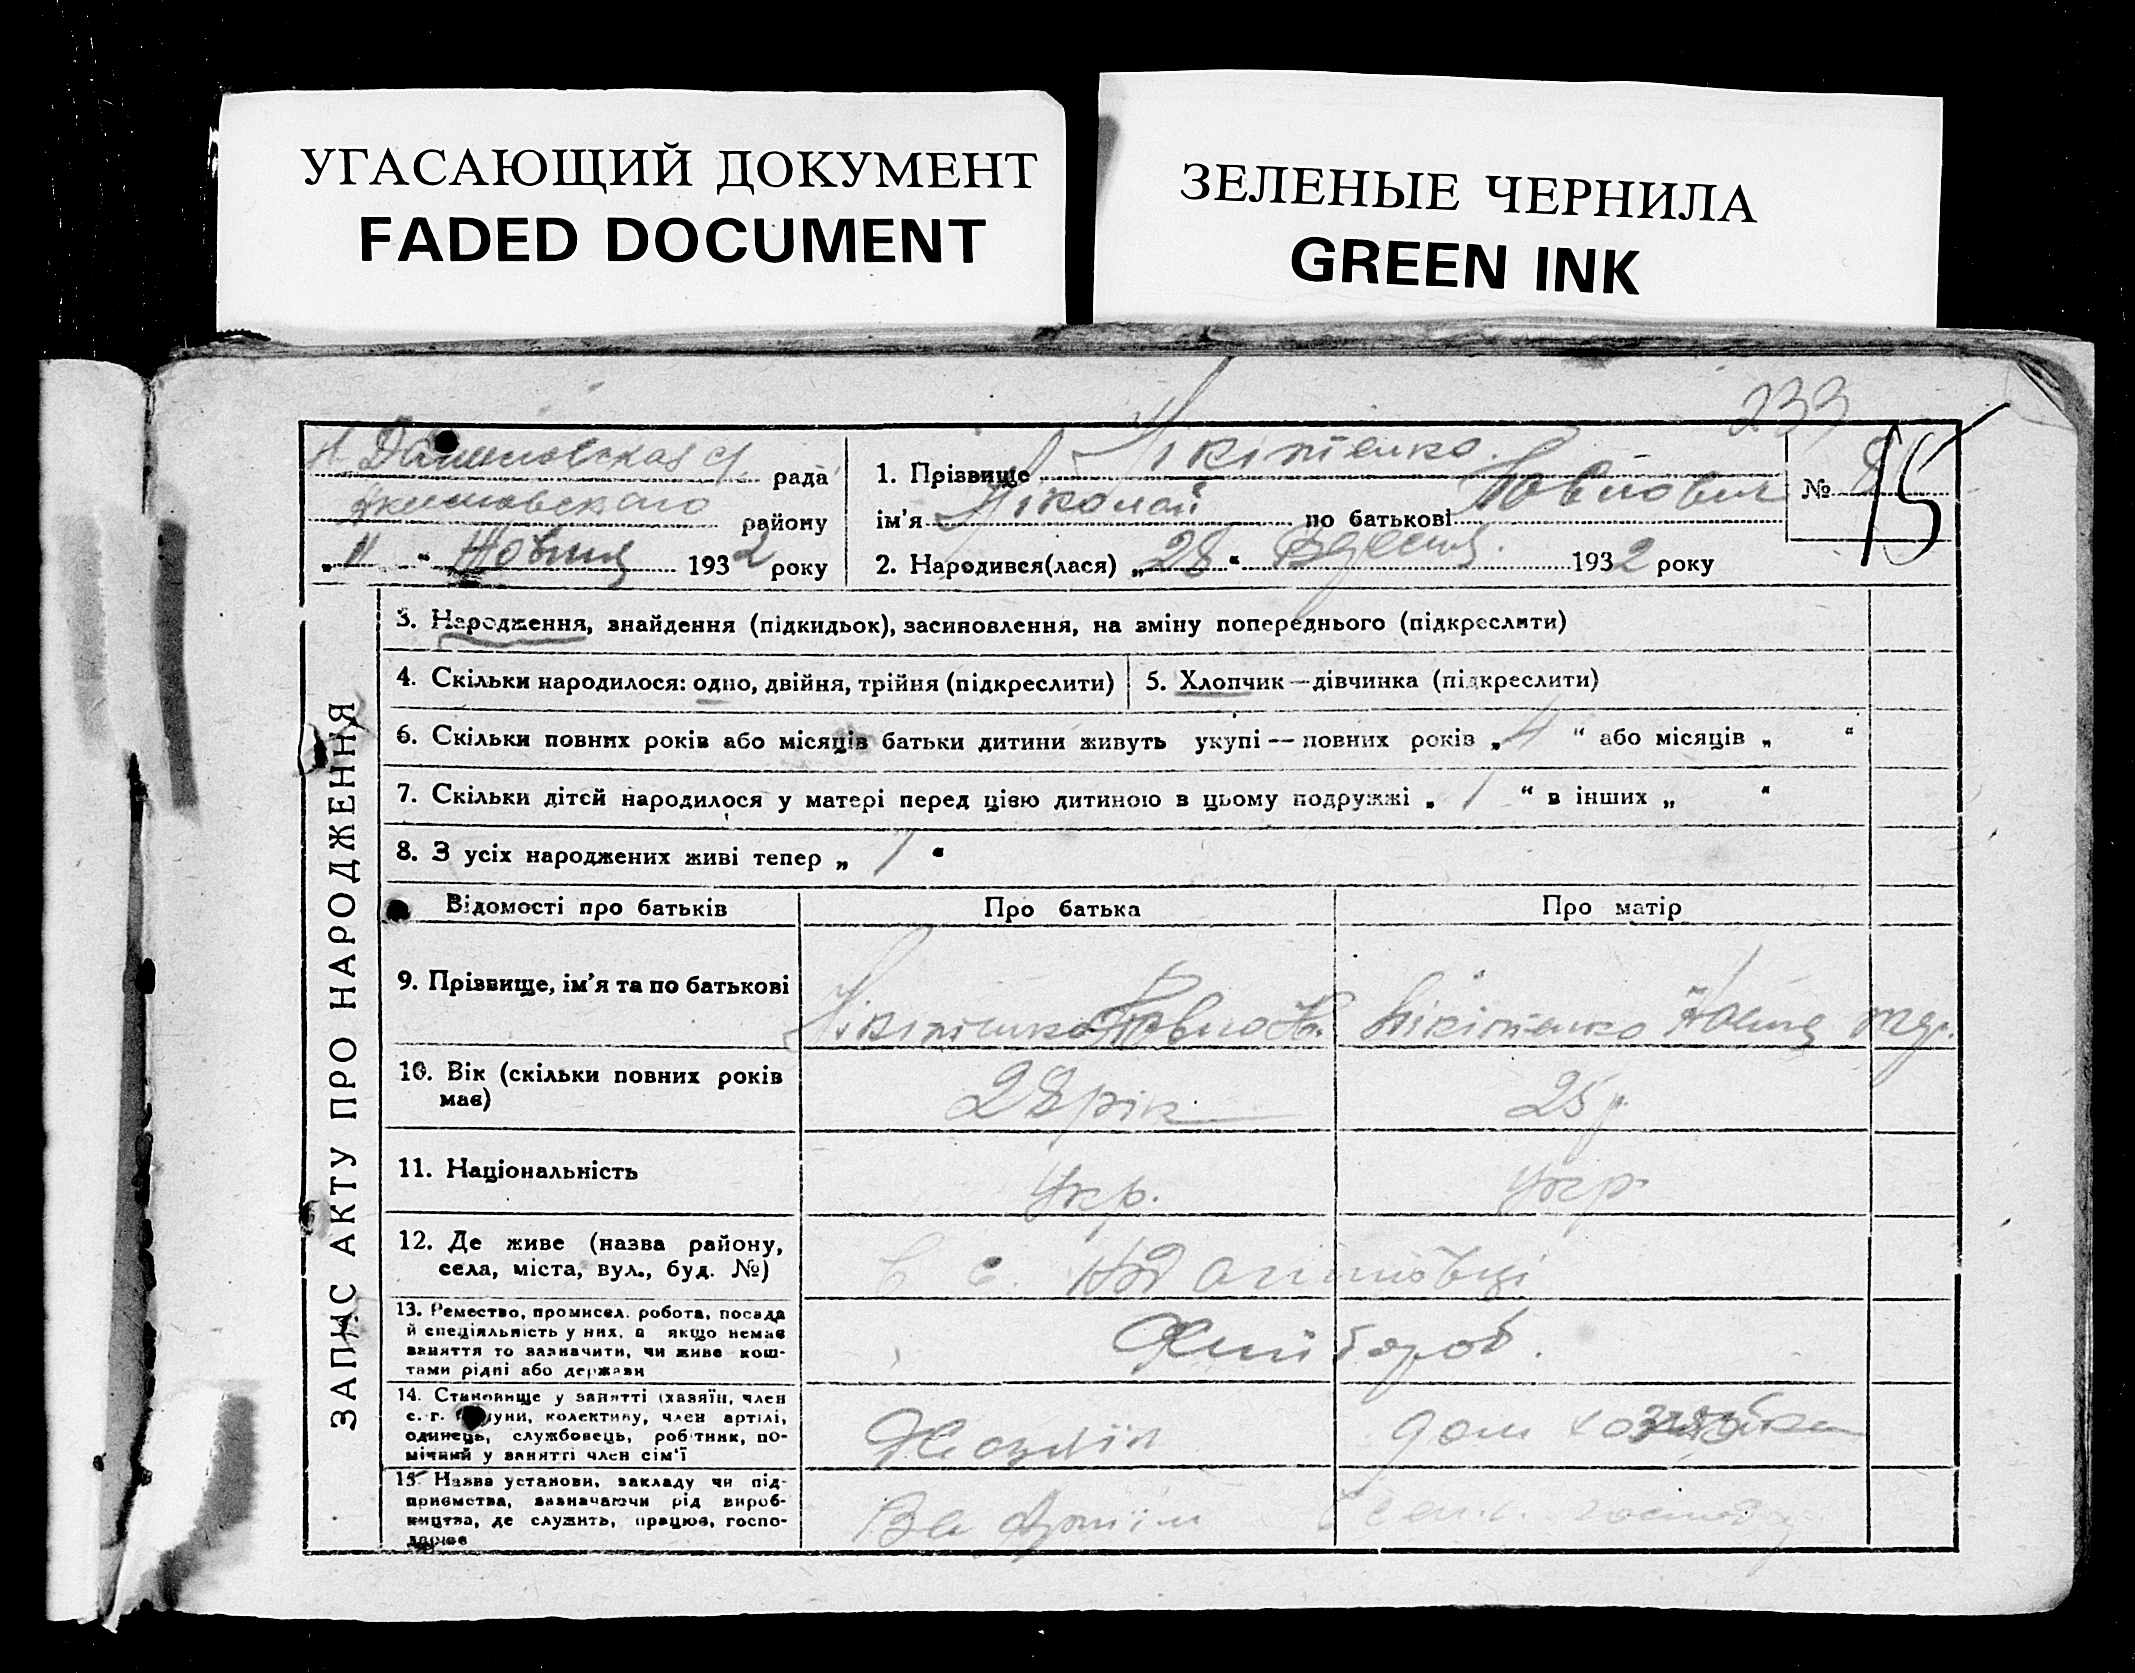 УГАСАЮЩИЙ ДОКУМЕНТ
FADED DOCUMENT
ЗЕЛЕНЫЕ ЧЕРНИЛА
GREEN INK
233
рада
району
„11“ Жовтня 1932 року
1. Прізвище Нікітенко.
ім'я Ніколай по батькові Павлович
№ 75
2. Народився(лася) „28“ Вресня. 1932 року
ЗАПИС АКТУ ПРО НАРОДЖЕННЯ
3. Народження, знайдення (підкидьок), засиновлення, на зміну попереднього (підкреслити)
4. Скільки народилося: одно, двійня, трійня (підкреслити)
5. Хлопчик—дівчинка (підкреслити)
6. Скільки повних років або місяців батьки дитини живуть укупі — повних років „4“ або місяців „ “
7. Скільки дітей народилося у матері перед цією дитиною в цьому подружжі „1“ в інших „ “
8. З усіх народжених живі тепер „1“
Відомості про батьків Про батька Про матір
9. Прізвище, ім'я та по батькові
Нікітенко Павло Нікітенко
10. Вік (скільки повних років має)
28 рік 25 р
11. Національність
Укр. Укр
12. Де живе (назва району,
села, міста, вул., буд. №)
в с.
13. Ремество, промисел, робота, посада
й спеціяльність у них, а якщо немає
заняття то зазначити, чи живе кош-
тами рідні або держави
Хлібороб.
14. Становище у занятті (хазяїн, член
с.-г. комуни, колективу, член артілі,
одинець, службовець, робітник, по-
мічний у занятті член сім'ї
дом хозяйка
15. Назва установи, закладу чи під-
приємства, зазначаючи рід вироб-
ництва, де служить, працює, госпо-
дарює